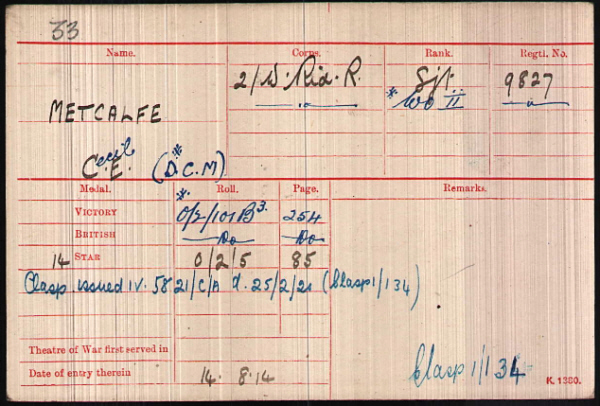 33
Name. Corps. Rank. Regtl. No.
2/W. Rid. R. Sjt. 9827
METCALFE —"— * WO II —"—
C.ecil E. (D.C.M)*
Medal. Roll. Page. Remarks.
VICTORY * O/2/101 B3. 254
BRITISH —Do— —Do—
14 STAR O/2/5 85
Clasp issued IV. 5821/C/A d. 25/2/21 (Clasp 1/134)
Theatre of War first served in
Date of entry therein 14. 8.14
Clasp 1/134
K. 1380.